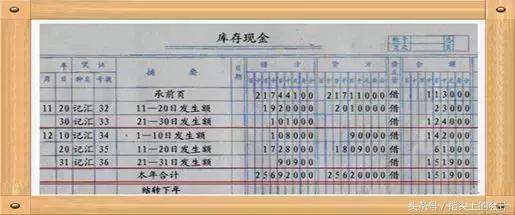 库存现金
年 凭证 摘要 日期 借方 贷方 借或贷 余额
月 日 种类 号数
承前页 21744100 21711000 借 113000
11 20 记汇 32 11—20日发生额 1920000 2010000 借 23000
30 记汇 33 21—30日发生额 101000 借 124000
12 10 记汇 34 1—10日发生额 108000 90000 借 142000
20 记汇 35 11—20日发生额 1728000 1809000 借 61000
31 记汇 36 21—31日发生额 90900 借 151900
本年合计 25692000 25620000 借 151900
结转下年
头条号 / 指尖上的会计